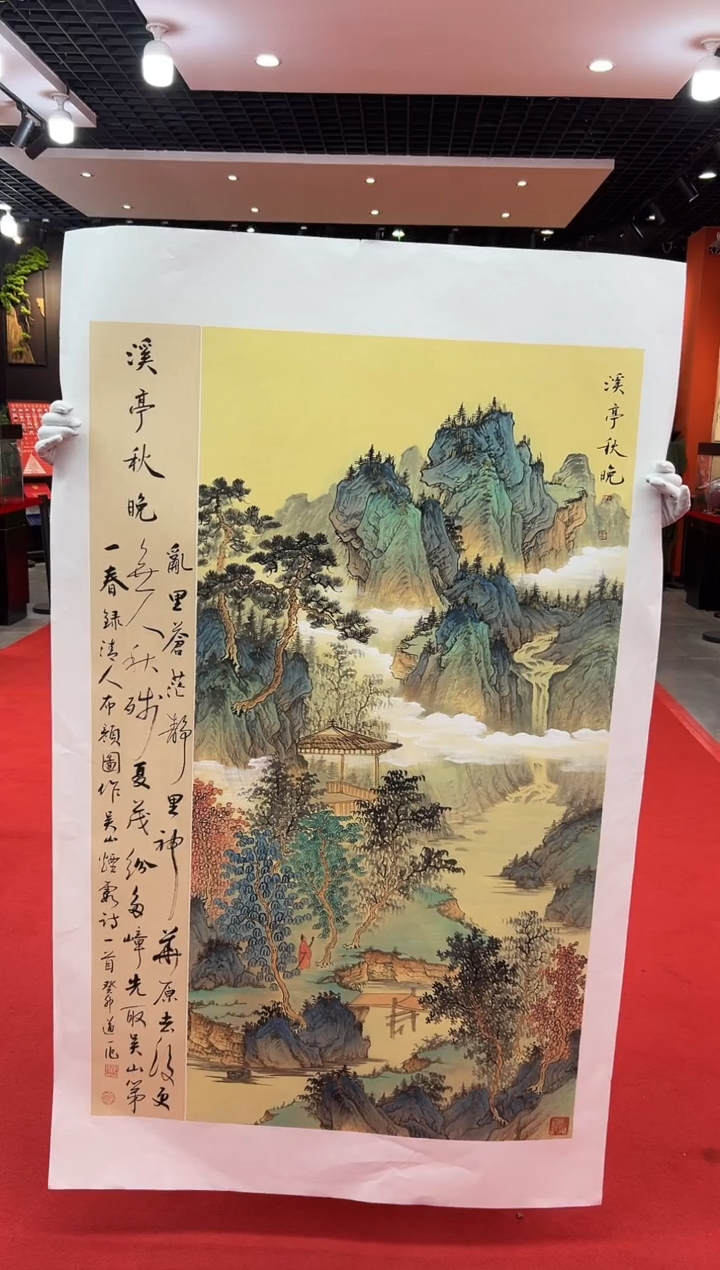 溪亭秋晚
溪亭秋晚
亂里蒼茫靜里神華原去後更
無人秋殘夏茂紛多嶂先取吳山第
一春 録清人布顏圖作吳山煙詩一首 癸卯 道一作